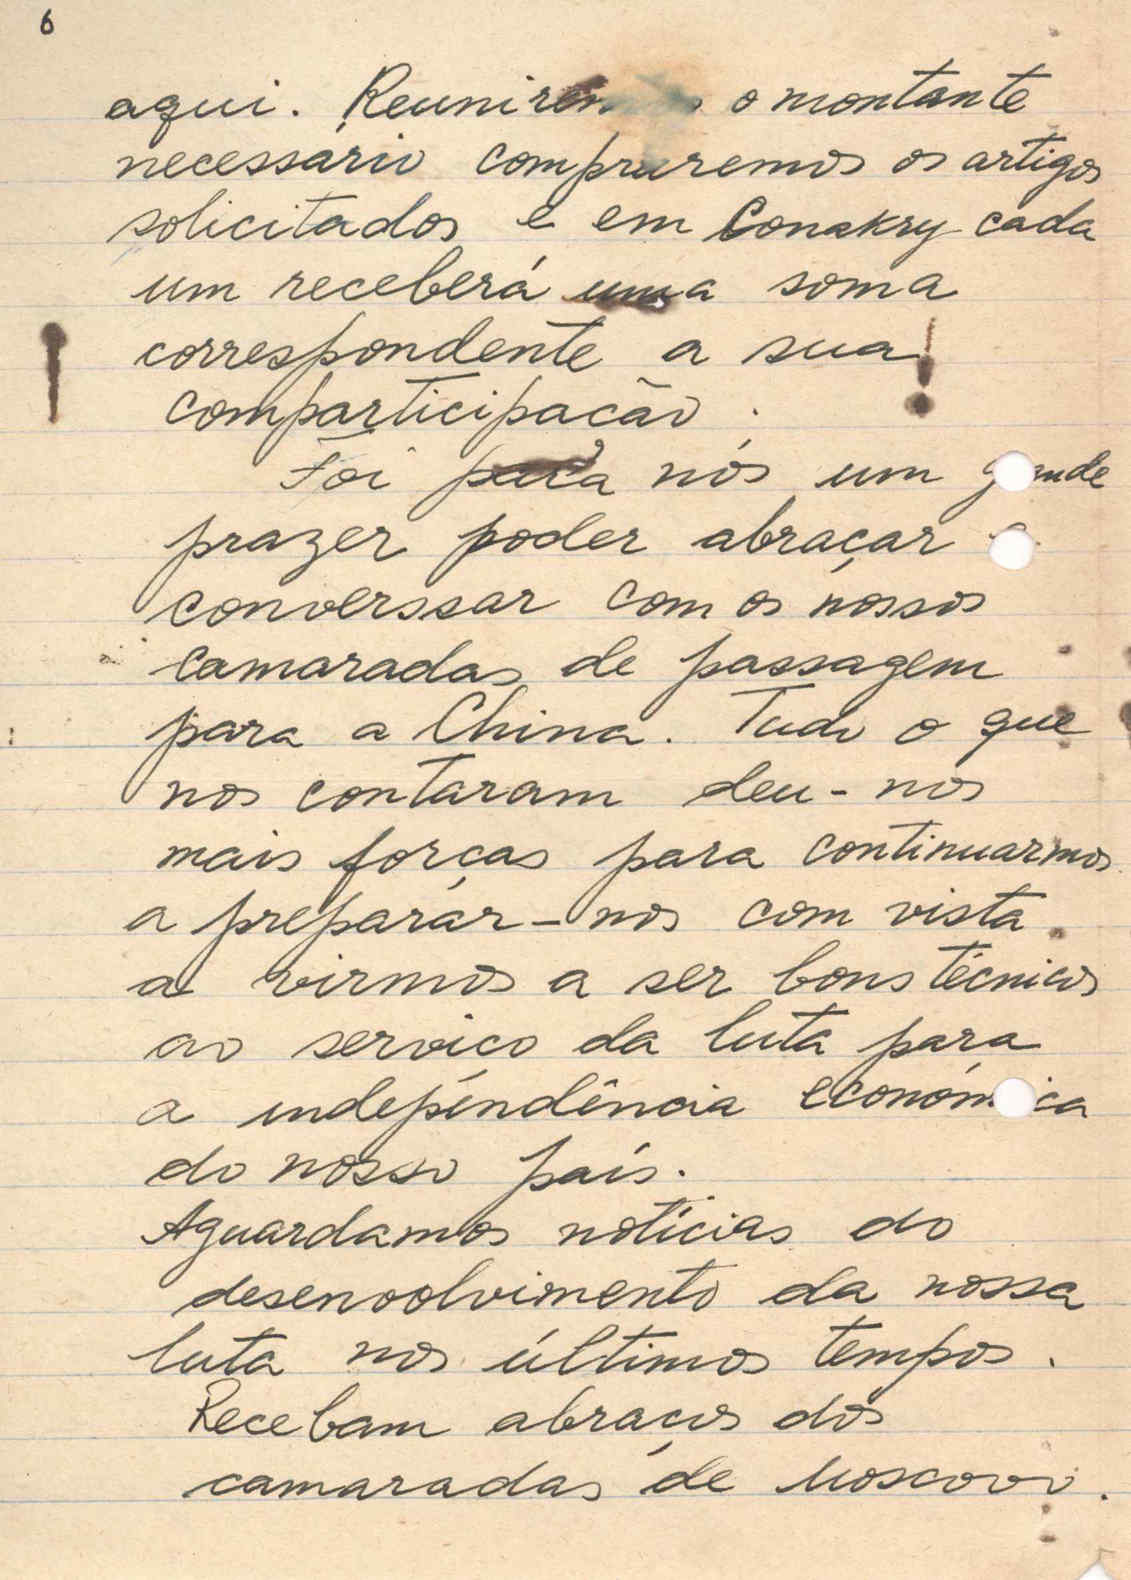 6
aqui. Reuniremos o montante
necessário compraremos os artigos
solicitados e em Conakry cada
um receberá uma soma
correspondente a sua
comparticipacão.
Foi para nós um grande
prazer poder abraçar e
converssar com os nossos
camaradas de passagem
para a China. Tudo o que
nos contaram deu-nos
mais forças para continuarmos
a preparár-nos com vista
a virmos a ser bons técnicos
ao serviço da luta para
a indepêndência económica
do nosso país.
Aguardamos notícias do
desenvolvimento da nossa
luta nos últimos tempos.
Recebam abraços dos
camaradas de Moscovo.